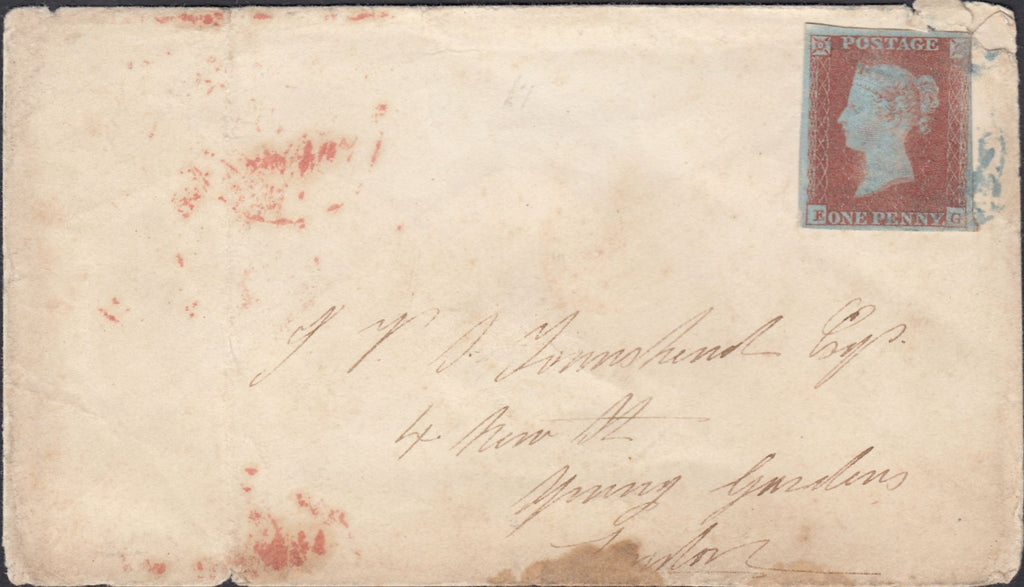 POSTAGE
F ONE PENNY G
Townshend Esq.
4 New St
Spring Gardens
London